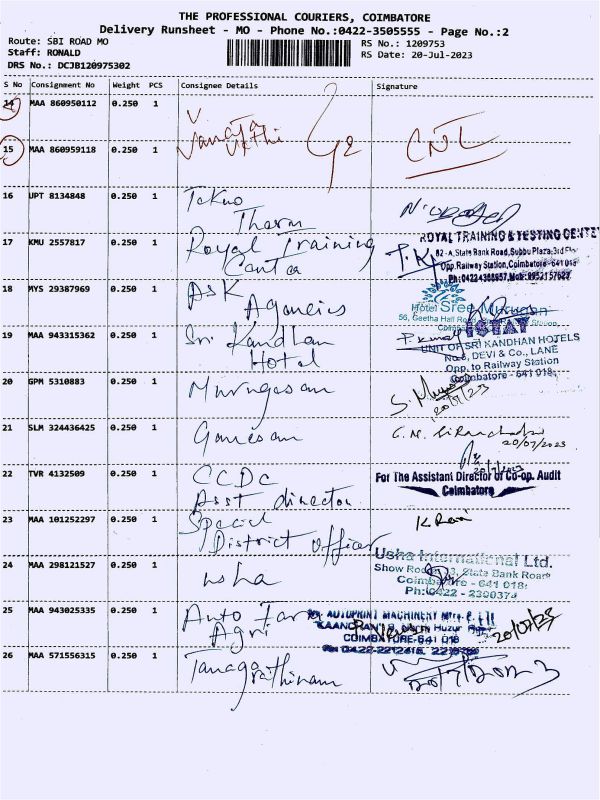 THE PROFESSIONAL COURIERS, COIMBATORE
Delivery Runsheet - MO - Phone No.:0422-3505555 - Page No.:2
Route: SBI ROAD MO RS No.: 1209753
Staff: RONALD RS Date: 20-Jul-2023
DRS No.: DCJB120975302
S No Consignment No Weight PCS Consignee Details Signature
14 MAA 860950112 0.250 1 V.
Vanaja
CNL
15 MAA 860959118 0.250 1
16 UPT 8134848 0.250 1 Tekno
Therm
ROYAL TRAINING & TESTING CENTER
17 KMU 2557817 0.250 1 Royal Training
82-A, State Bank Road, Subbu Plaza, 3rd
Opp. Railway Station, Coimbatore - 641 018
18 MYS 29387969 0.250 1 ASK
Agencies
Hotel Sree Murugan
ISTAY
19 MAA 943315362 0.250 1 Sri Kandhan
Hotel
UNIT OF SRI KANDHAN HOTELS
No.8, DEVI & Co., LANE
Opp. to Railway Station
Coimbatore - 641 018.
20 GPM 5310883 0.250 1 Murugesan
S.
20/7/23
21 SLM 324436425 0.250 1 Ganesan
20/07/2023
22 TVR 4132509 0.250 1 CCDC
Asst director
For The Assistant Director of Co-op. Audit
Coimbatore
23 MAA 101252297 0.250 1 Special
District officer
K. Rani
24 MAA 298121527 0.250 1 usha
Usha International Ltd.
State Bank Road
Coimbatore - 641 018.
Ph:0422 -
25 MAA 943025335 0.250 1 Auto
Agri
AUTOPRINT MACHINERY
COIMBATORE-641 018
20/07/23
26 MAA 571556315 0.250 1
20/7/2023